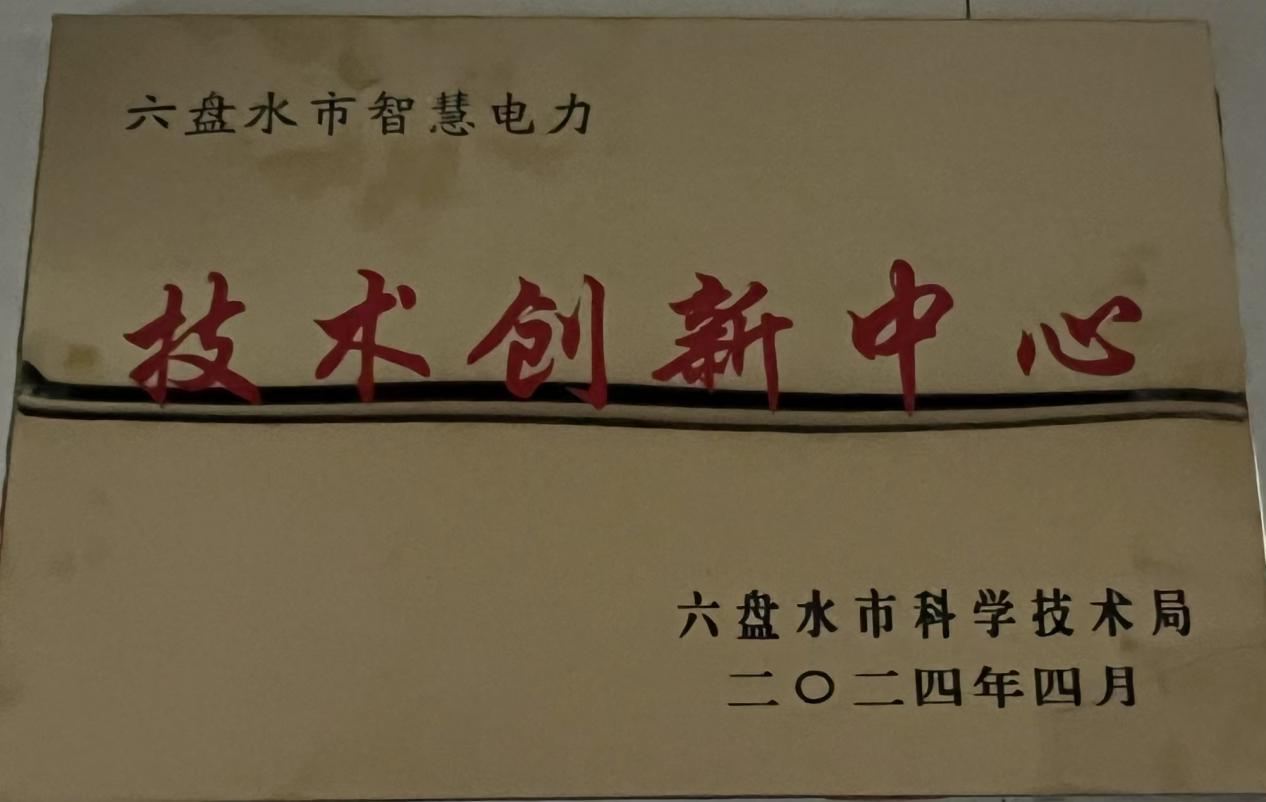 六盘水市智慧电力
技术创新中心
六盘水市科学技术局
二〇二四年四月